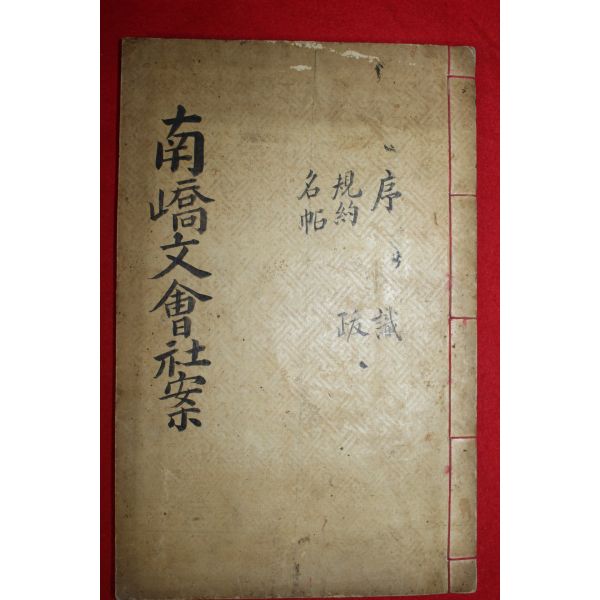 序 識
規約 跋
名帖
南嶠文會社案